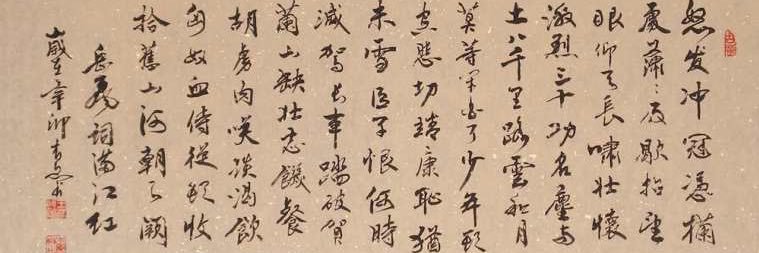 怒发冲冠憑欄
處蕭〻雨歇抬望
眼仰天長嘯壮懷
激烈三十功名塵与
土八千里路雲和月
莫等闲白了少年头
空悲切靖康恥猶
未雪臣子恨何時
滅駕长車踏破賀
蘭山缺壮志饑餐
胡虜肉笑谈渴飲
匈奴血待從头收
拾舊山河朝天阙
岳飛詞滿江红
歲在辛卯